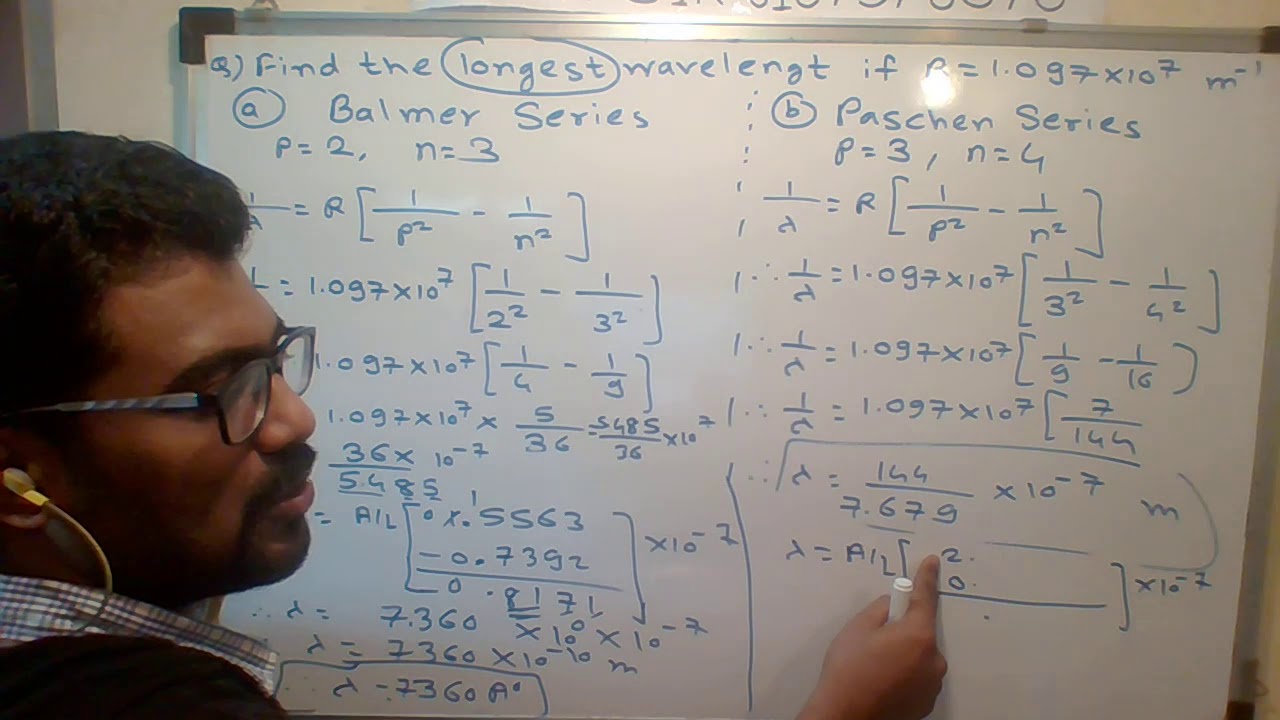 Q) Find the longest wavelengt if R = 1.097×10⁷ m⁻¹
(a) Balmer Series
P = 2, n = 3
1/λ = R [1/P² - 1/n²]
= 1.097×10⁷ [1/2² - 1/3²]
1.097×10⁷ [1/4 - 1/9]
1.097×10⁷ × 5/36 = 5.485/36 ×10⁷
36 × 10⁻⁷ / 5.485
= A/L [1.5563
- 0.7392
0.8171] ×10⁻⁷
∴ λ = 7.360 × 10⁰ × 10⁻⁷
λ = 7360 × 10⁻¹⁰ m
λ - 7360 A°
(b) Paschen Series
P = 3, n = 4
1/λ = R [1/P² - 1/n²]
∴ 1/λ = 1.097×10⁷ [1/3² - 1/4²]
∴ 1/λ = 1.097×10⁷ [1/9 - 1/16]
∴ 1/λ = 1.097×10⁷ [7/144
∴ λ = 144/7.679 × 10⁻⁷ m
λ = A/L [2.
0.
.] ×10⁻⁷